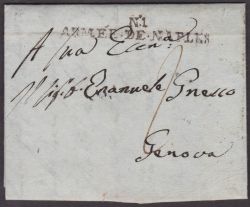 N.1
ARMÉE.DE.NAPLES
A Sua Eccna
Emanuele Gnecco
Genova